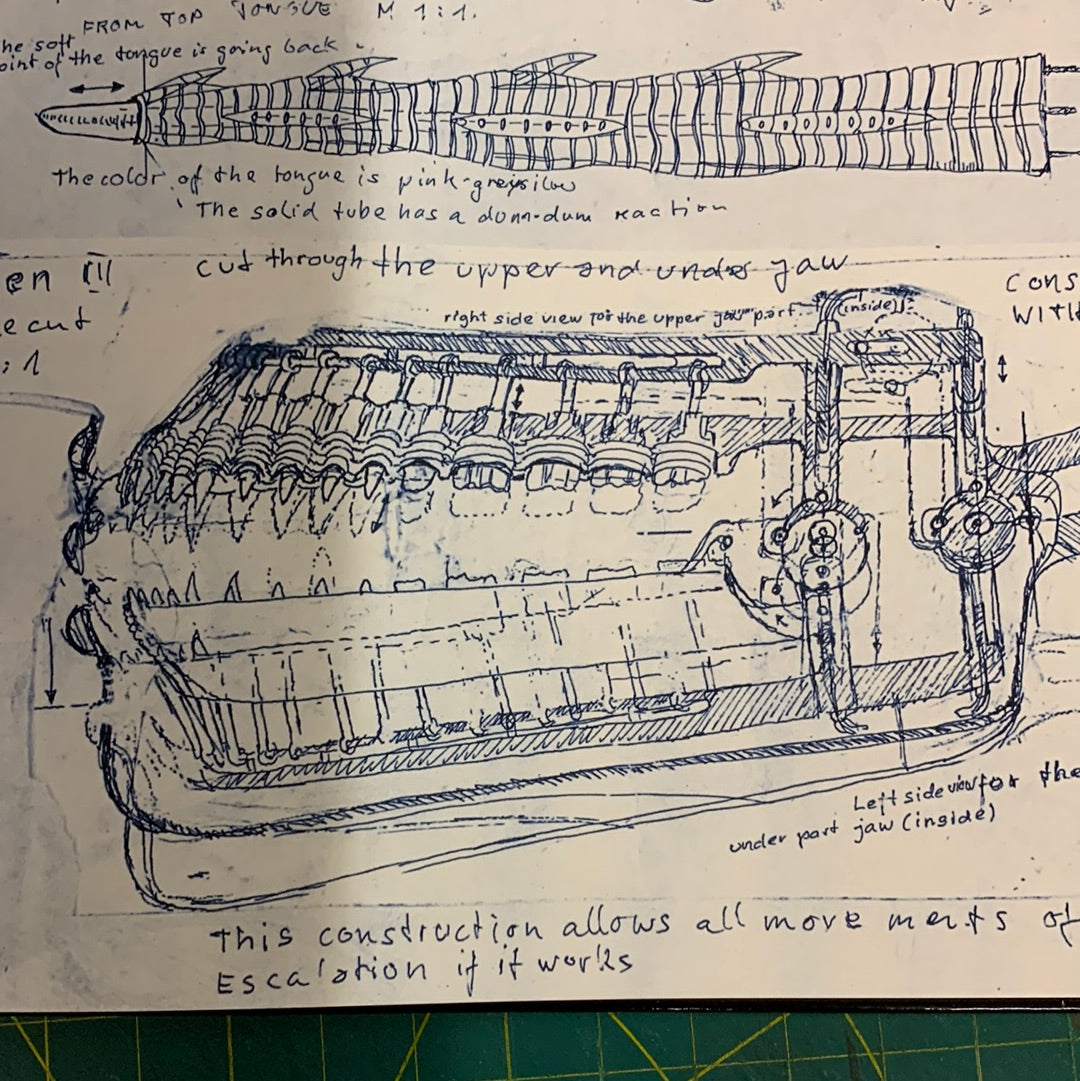 FROM TOP TONGUE M 1:1.
he soft
oint of the tongue is going back
The color of the tongue is pink-
The solid tube has a dum-dum reaction
en III
e cut
: 1
cut through the upper and under jaw
CONS
WITH
right side view for the upper jaw part
(inside)
Left side view for the
under part jaw (inside)
This construction allows all move ments of
Escalation if it works